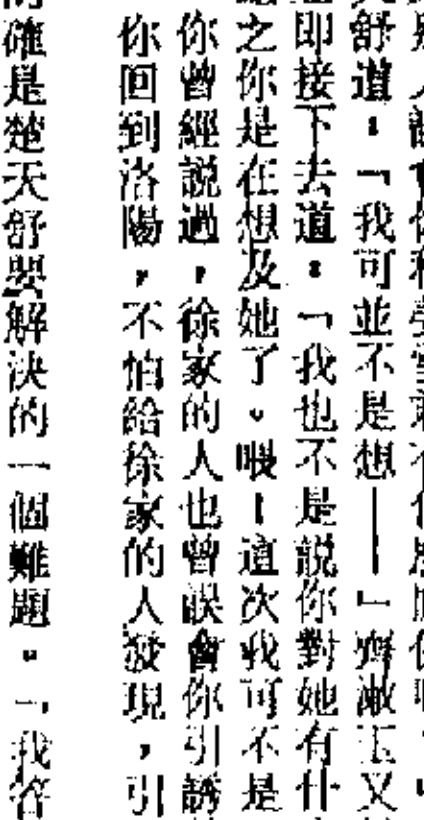 舒道：「我可並不是想——」齊漱玉又
即接下去道：「我也不是說你對她有什
之你是在想及她了。喂！這次我可不是
你曾經說過，徐家的人也曾誤會你引誘
你回到洛陽，不怕給徐家的人發現，引
確是楚天舒要解決的一個難題。「我答